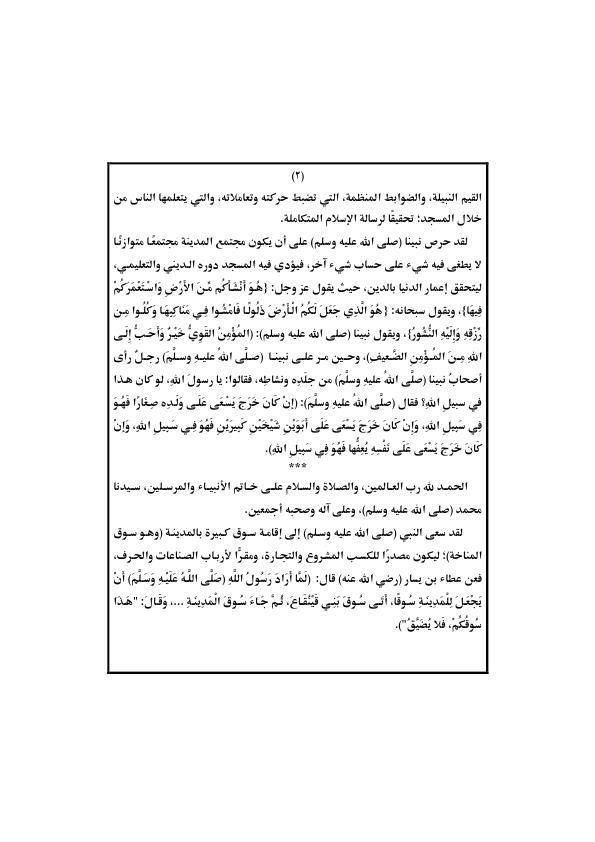 (٢)
القيم النبيلة، والضوابط المنظمة، التي تضبط حركته وتعاملاته، والتي يتعلمها الناس من
خلال المسجد؛ تحقيقًا لرسالة الإسلام المتكاملة.
لقد حرص نبينا (صلى الله عليه وسلم) على أن يكون مجتمع المدينة مجتمعًا متوازنًا
لا يطغى فيه شيء على حساب شيء آخر، فيؤدي فيه المسجد دوره الديني والتعليمي،
ليتحقق إعمار الدنيا بالدين، حيث يقول عز وجل: {هُوَ أَنْشَأَكُم مِّنَ الأَرْضِ وَاسْتَعْمَرَكُمْ
فِيهَا}، ويقول سبحانه: {هُوَ الَّذِي جَعَلَ لَكُمُ الْأَرْضَ ذَلُولًا فَامْشُوا فِي مَنَاكِبِهَا وَكُلُوا مِن
رِّزْقِهِ وَإِلَيْهِ النُّشُورُ}، ويقول نبينا (صلى الله عليه وسلم): (المُؤْمِنُ القَوِيُّ خَيْرٌ وَأَحَبُّ إِلَى
اللهِ مِنَ المُؤْمِنِ الضَّعِيفِ)، وحين مر على نبينا (صلَّى اللهُ عليهِ وسلَّمَ) رجلٌ رأى
أصحابُ نبينا (صلَّى اللهُ عليهِ وسلَّمَ) من جلَدِه ونشاطِه، فقالوا: يا رسولَ اللهِ، لو كان هذا
في سبيلِ اللهِ؟ فقال (صلَّى اللهُ عليهِ وسلَّمَ): (إنْ كَانَ خَرَجَ يَسْعَى عَلَى وَلَدِه صِغَارًا فَهُوَ
فِي سَبِيلِ اللهِ، وَإِنْ كَانَ خَرَجَ يَسْعَى عَلَى أَبَوَيْنِ شَيْخَيْنِ كَبِيرَيْنِ فَهُوَ فِي سَبِيلِ اللهِ، وَإِنْ
كَانَ خَرَجَ يَسْعَى عَلَى نَفْسِهِ يُعِفُّها فَهُوَ فِي سَبِيلِ اللهِ).
***
الحمد لله رب العالمين، والصلاة والسلام على خاتم الأنبياء والمرسلين، سيدنا
محمد (صلى الله عليه وسلم)، وعلى آله وصحبه أجمعين.
لقد سعى النبي (صلى الله عليه وسلم) إلى إقامة سوق كبيرة بالمدينة (وهو سوق
المناخة)؛ ليكون مصدرًا للكسب المشروع والتجارة، ومقرًّا لأرباب الصناعات والحرف،
فعن عطاء بن يسار (رضي الله عنه) قال: (لَمَّا أَرَادَ رَسُولُ اللَّهِ (صَلَّى اللَّهُ عَلَيْهِ وَسَلَّمَ) أَنْ
يَجْعَلَ لِلْمَدِينَةِ سُوقًا، أَتَى سُوقَ بَنِي قَيْنُقَاعَ، ثُمَّ جَاءَ سُوقَ الْمَدِينَةِ ...، وَقَالَ: "هَذَا
سُوقُكُمْ، فَلا يُضَيَّقُ").